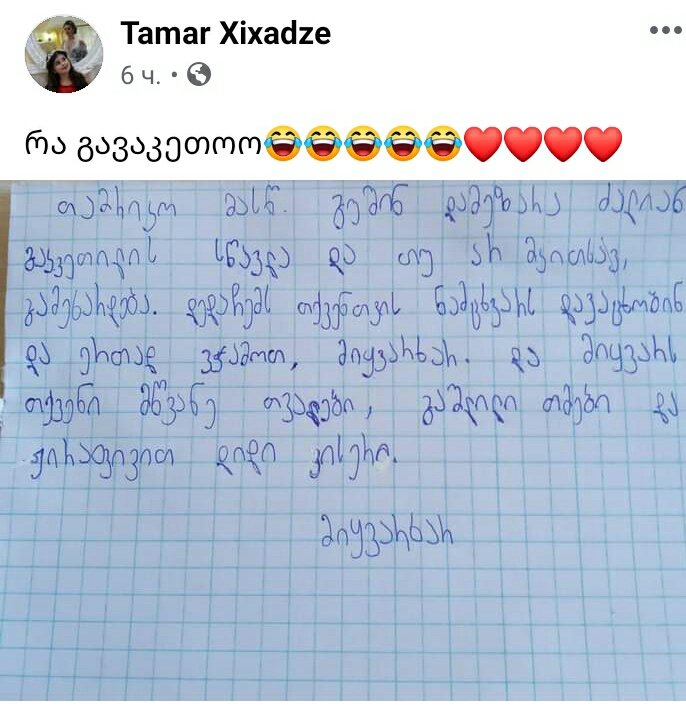 Tamar Xixadze
6 ч.
რა გავაკეთოო😂😂😂😂😂❤❤❤❤
თამრიკო მასწ. გუშინ დამეზარა ძალიან
გაკვეთილის სწავლა და თუ არ მკითხავ,
გამეხარდება. დედაჩემს თქვენთვის ნამცხვარს დავაცხობინ
და ერთად ვჭამოთ, მიყვარხარ. და მიყვარს
თქვენი მწვანე თვალები, გაშლილი თმები და
ჟირაფივით დიდი კისერი.
მიყვარხარ